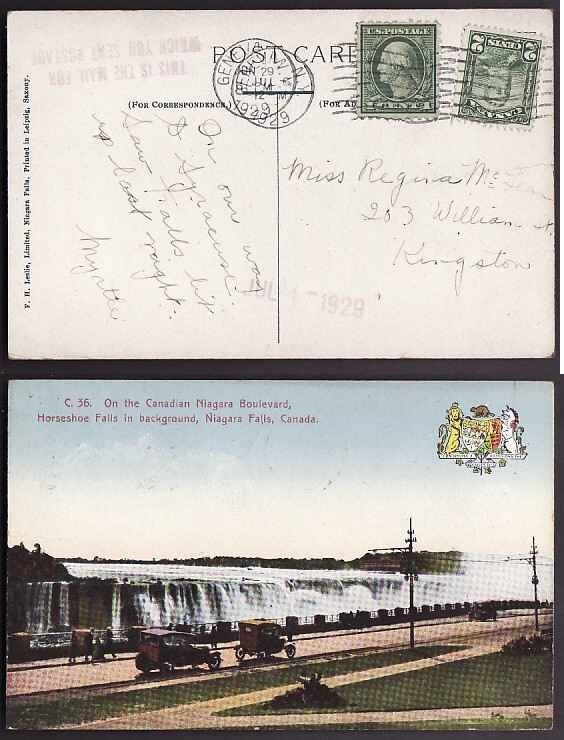 THIS IS THE MAIL FOR
WHICH YOU SENT POSTAGE
POST CARD
(FOR CORRESPONDENCE.)
(FOR AD
JUN 29
1929
U.S. POSTAGE
1 CENT 1
2
F. H. Leslie, Limited, Niagara Falls. Printed in Leipzig, Saxony.
On our way
to Syracuse.
Saw Falls lit
up last night.
Myrtle
Miss Regina Mc
203 William St.
Kingston
JUL 1 - 1929
C. 36. On the Canadian Niagara Boulevard,
Horseshoe Falls in background, Niagara Falls, Canada.